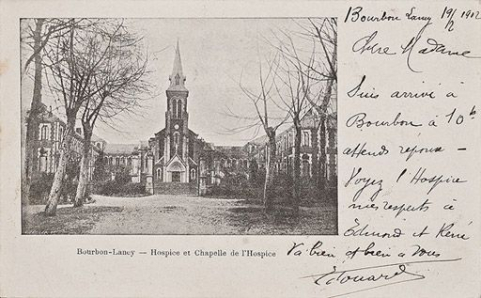 Bourbon Lancy 19/2 1902
Chère Madame
Suis arrivé à
Bourbon à 10h
attends réponse –
Voyez l'Hospice
mes respects à
Edmond et René
Va bien et bien à vous
Edouard
Bourbon-Lancy — Hospice et Chapelle de l'Hospice